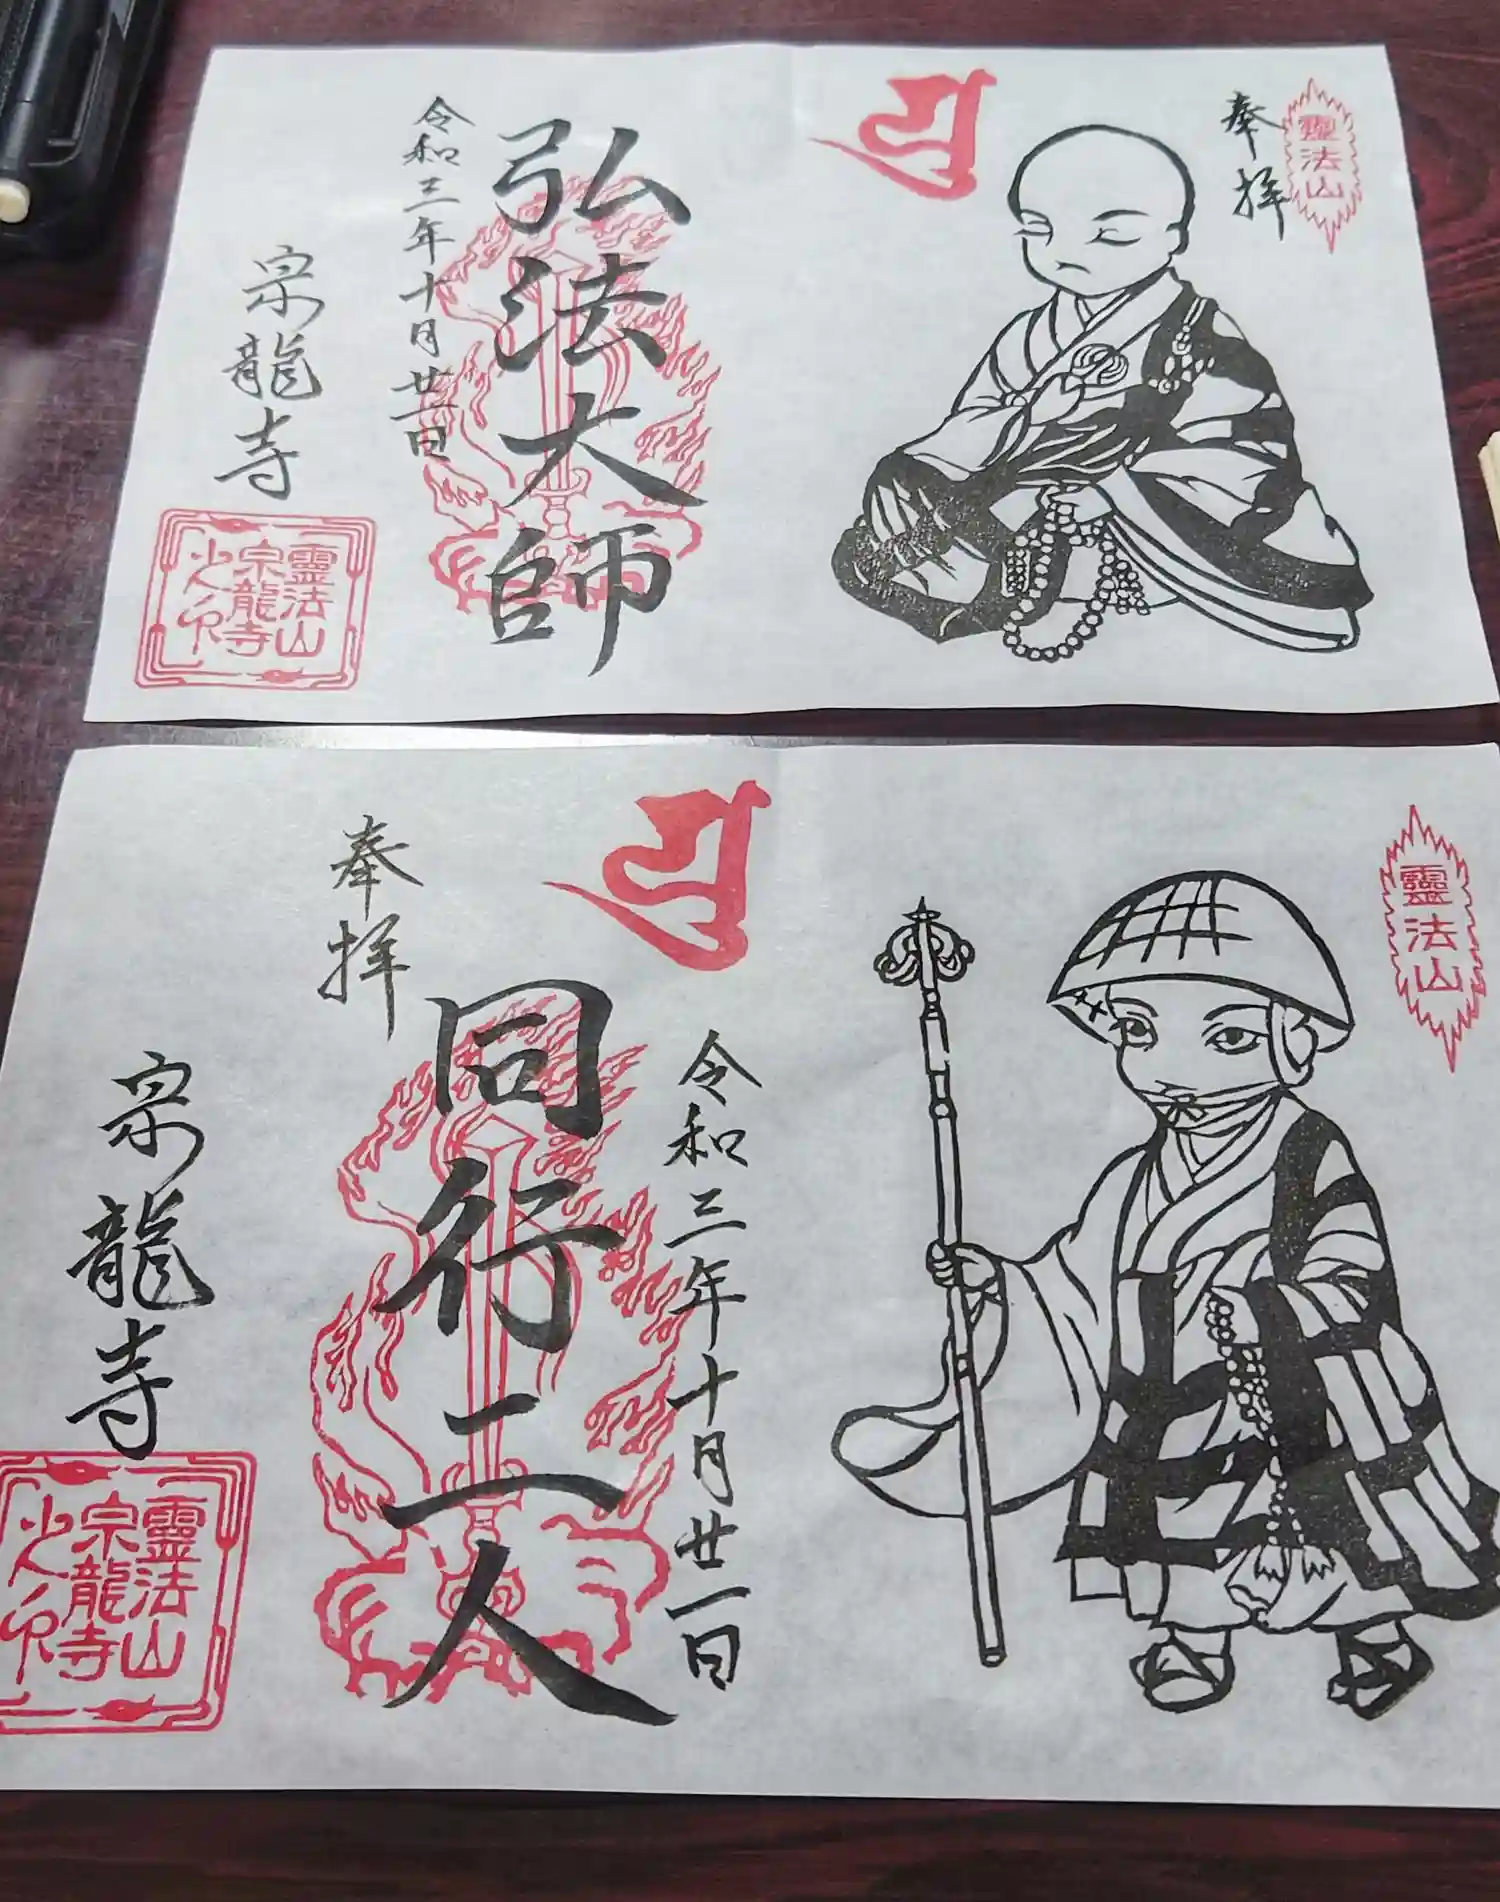 奉拝
靈法山
弘法大師
令和三年十月廿一日
宗龍寺
靈法山
宗龍寺
靈法山
令和三年十月廿一日
同行二人
奉拝
宗龍寺
靈法山
宗龍寺